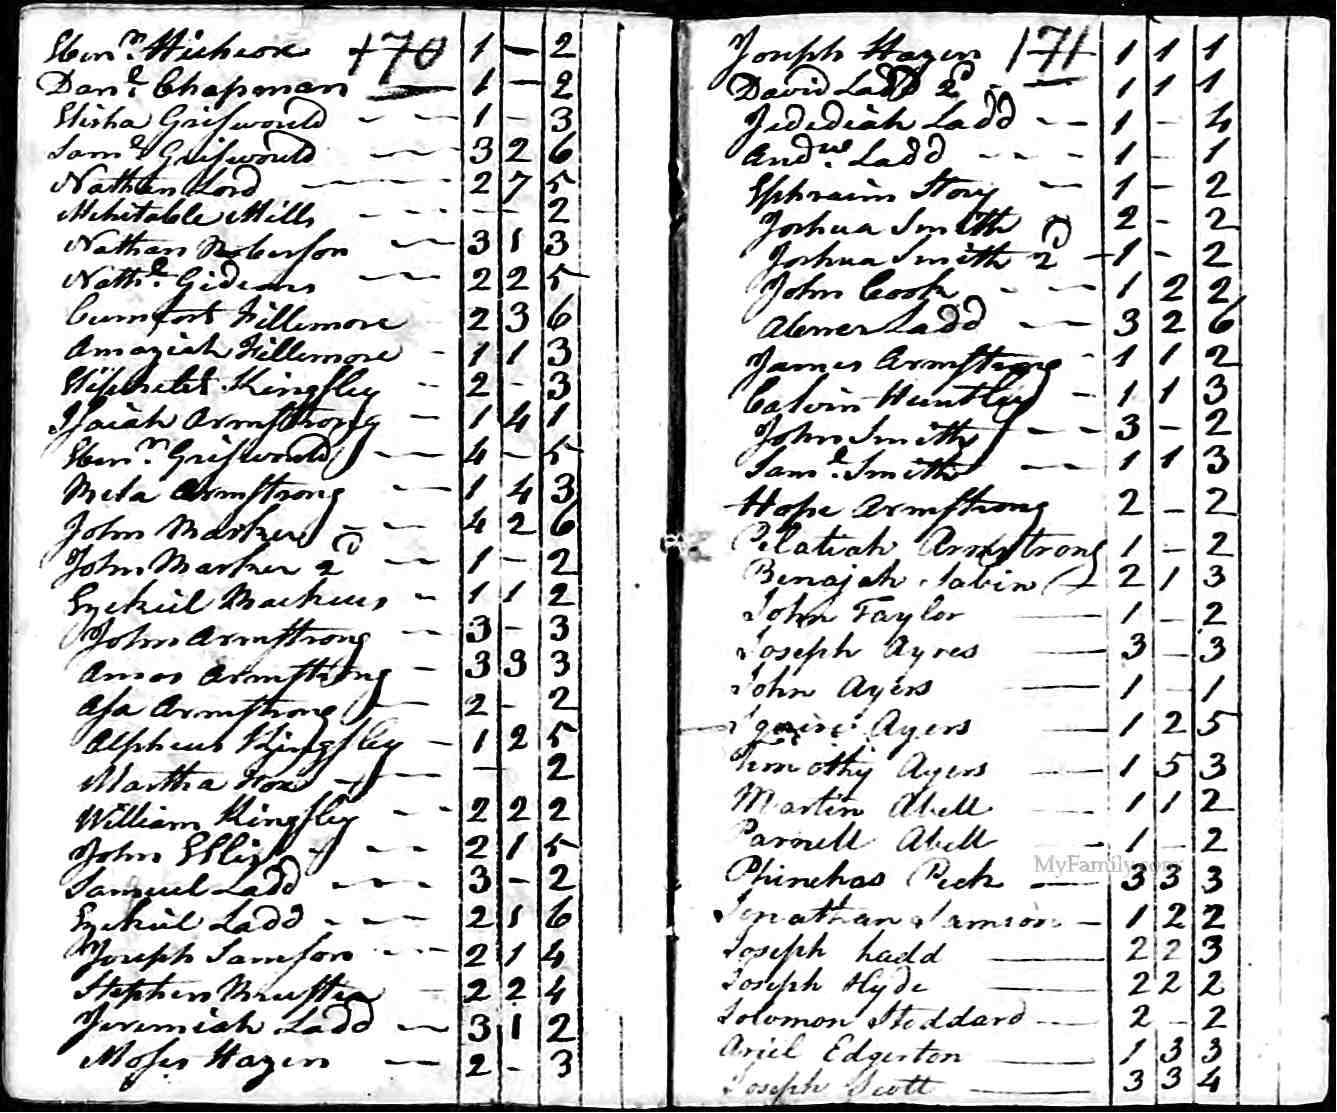 Ebenr. Hichcox 170 1 - 2
Danl. Chapman 1 - 2
Elisha Grifwould 1 - 3
Saml. Grifwould 3 2 6
Nathan Lord 2 7 5
Mehitable Mills - - 2
Nathan Roberson 3 1 3
Nathl. Gideons 2 2 5
Cumfort Fillemore 2 3 6
Amaziah Fillemore 1 1 3
Kingsley 2 - 3
Isaiah Armstrong 1 4 1
Ebenr. Grifwould 4 - 5
Armstrong 1 4 3
John Marker 4 2 6
John Marker 2d 1 - 2
Ezekiel 1 1 2
John Armstrong 3 - 3
Amos Armstrong 3 3 3
Asa Armstrong 2 - 2
Alpheus Kingsley 1 2 5
Martha Fox - 2
William Kingsley 2 2 2
John Ellis 2 1 5
Samuel Ladd 3 - 2
Ezekiel Ladd 2 1 6
Joseph Samson 2 1 4
Stephen 2 2 4
Jeremiah Ladd 3 1 2
Moses Hazen 2 - 3
Joseph Hazen 171 1 1 1
David Ladd 2d 1 1 1
Jedediah Ladd 1 - 4
Andw. Ladd 1 - 1
Ephraim Story 1 - 2
Joshua Smith 2 - 2
Joshua Smith 2d 1 - 2
John Cook 1 2 2
Abner Ladd 3 2 6
James Armstrong 1 1 2
Calvin Huntley 1 1 3
John Smith 3 - 2
Saml. Smith 1 1 3
Hope Armstrong 2 - 2
Pelatiah Armstrong 1 - 2
Benajah Sabin 2 1 3
John Taylor 1 - 2
Joseph Ayres 3 - 3
John Ayers 1 - 1
Squire Ayers 1 2 5
Timothy Ayers 1 5 3
Martin Abell 1 1 2
Parnell Abell 1 - 2
MyFamily.com
Phinehas Peck 3 3 3
Jonathan Samson 1 2 2
Joseph Ladd 2 2 3
Joseph Hyde 2 2 2
Solomon Stoddard 2 - 2
Ariel Edgerton 1 3 3
Joseph Scott 3 3 4